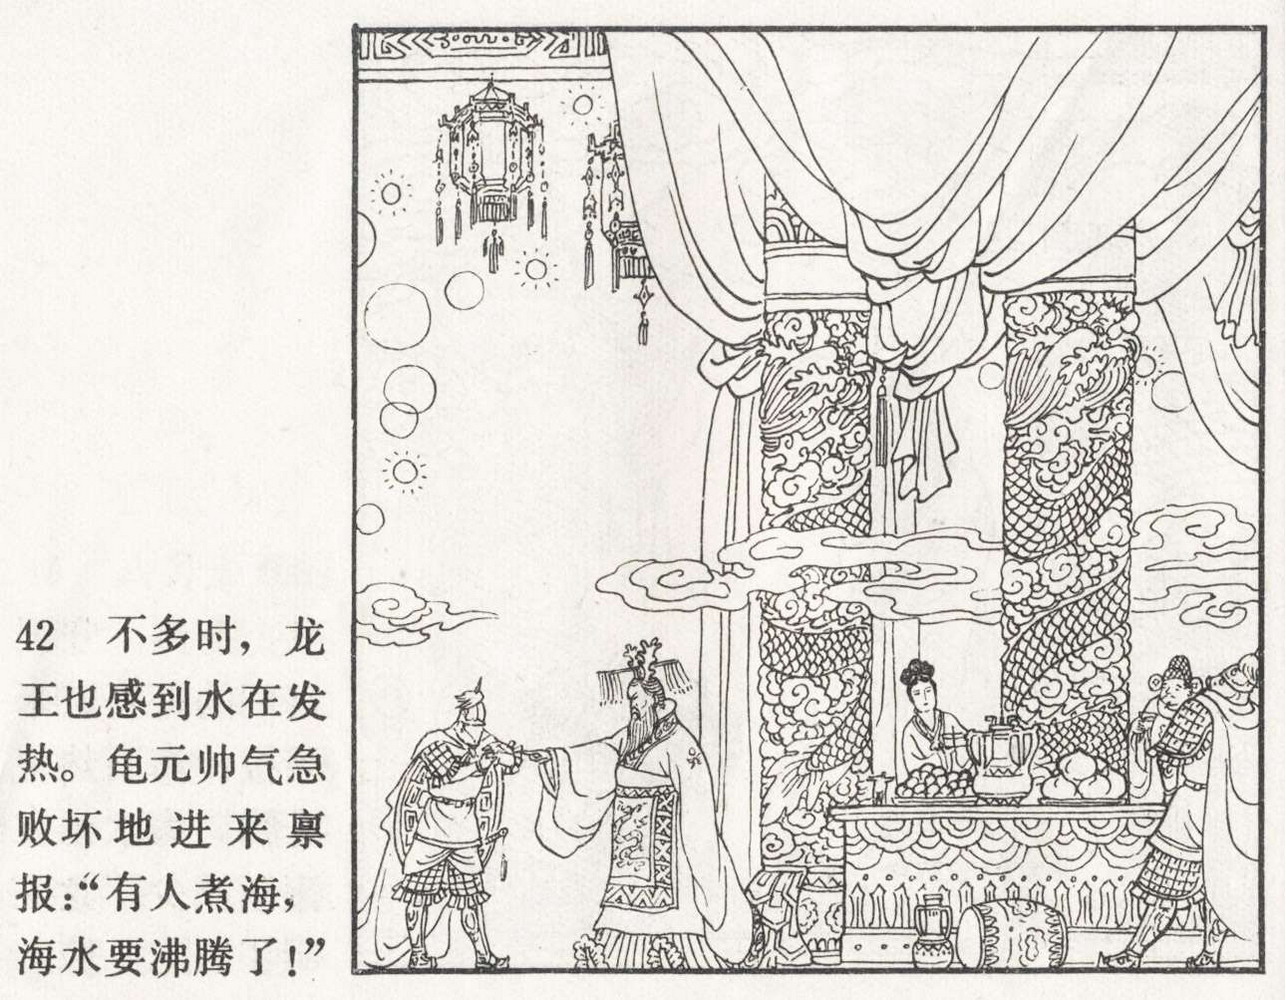 42 不多时，龙
王也感到水在发
热。龟元帅气急
败坏地进来禀
报：“有人煮海，
海水要沸腾了！”